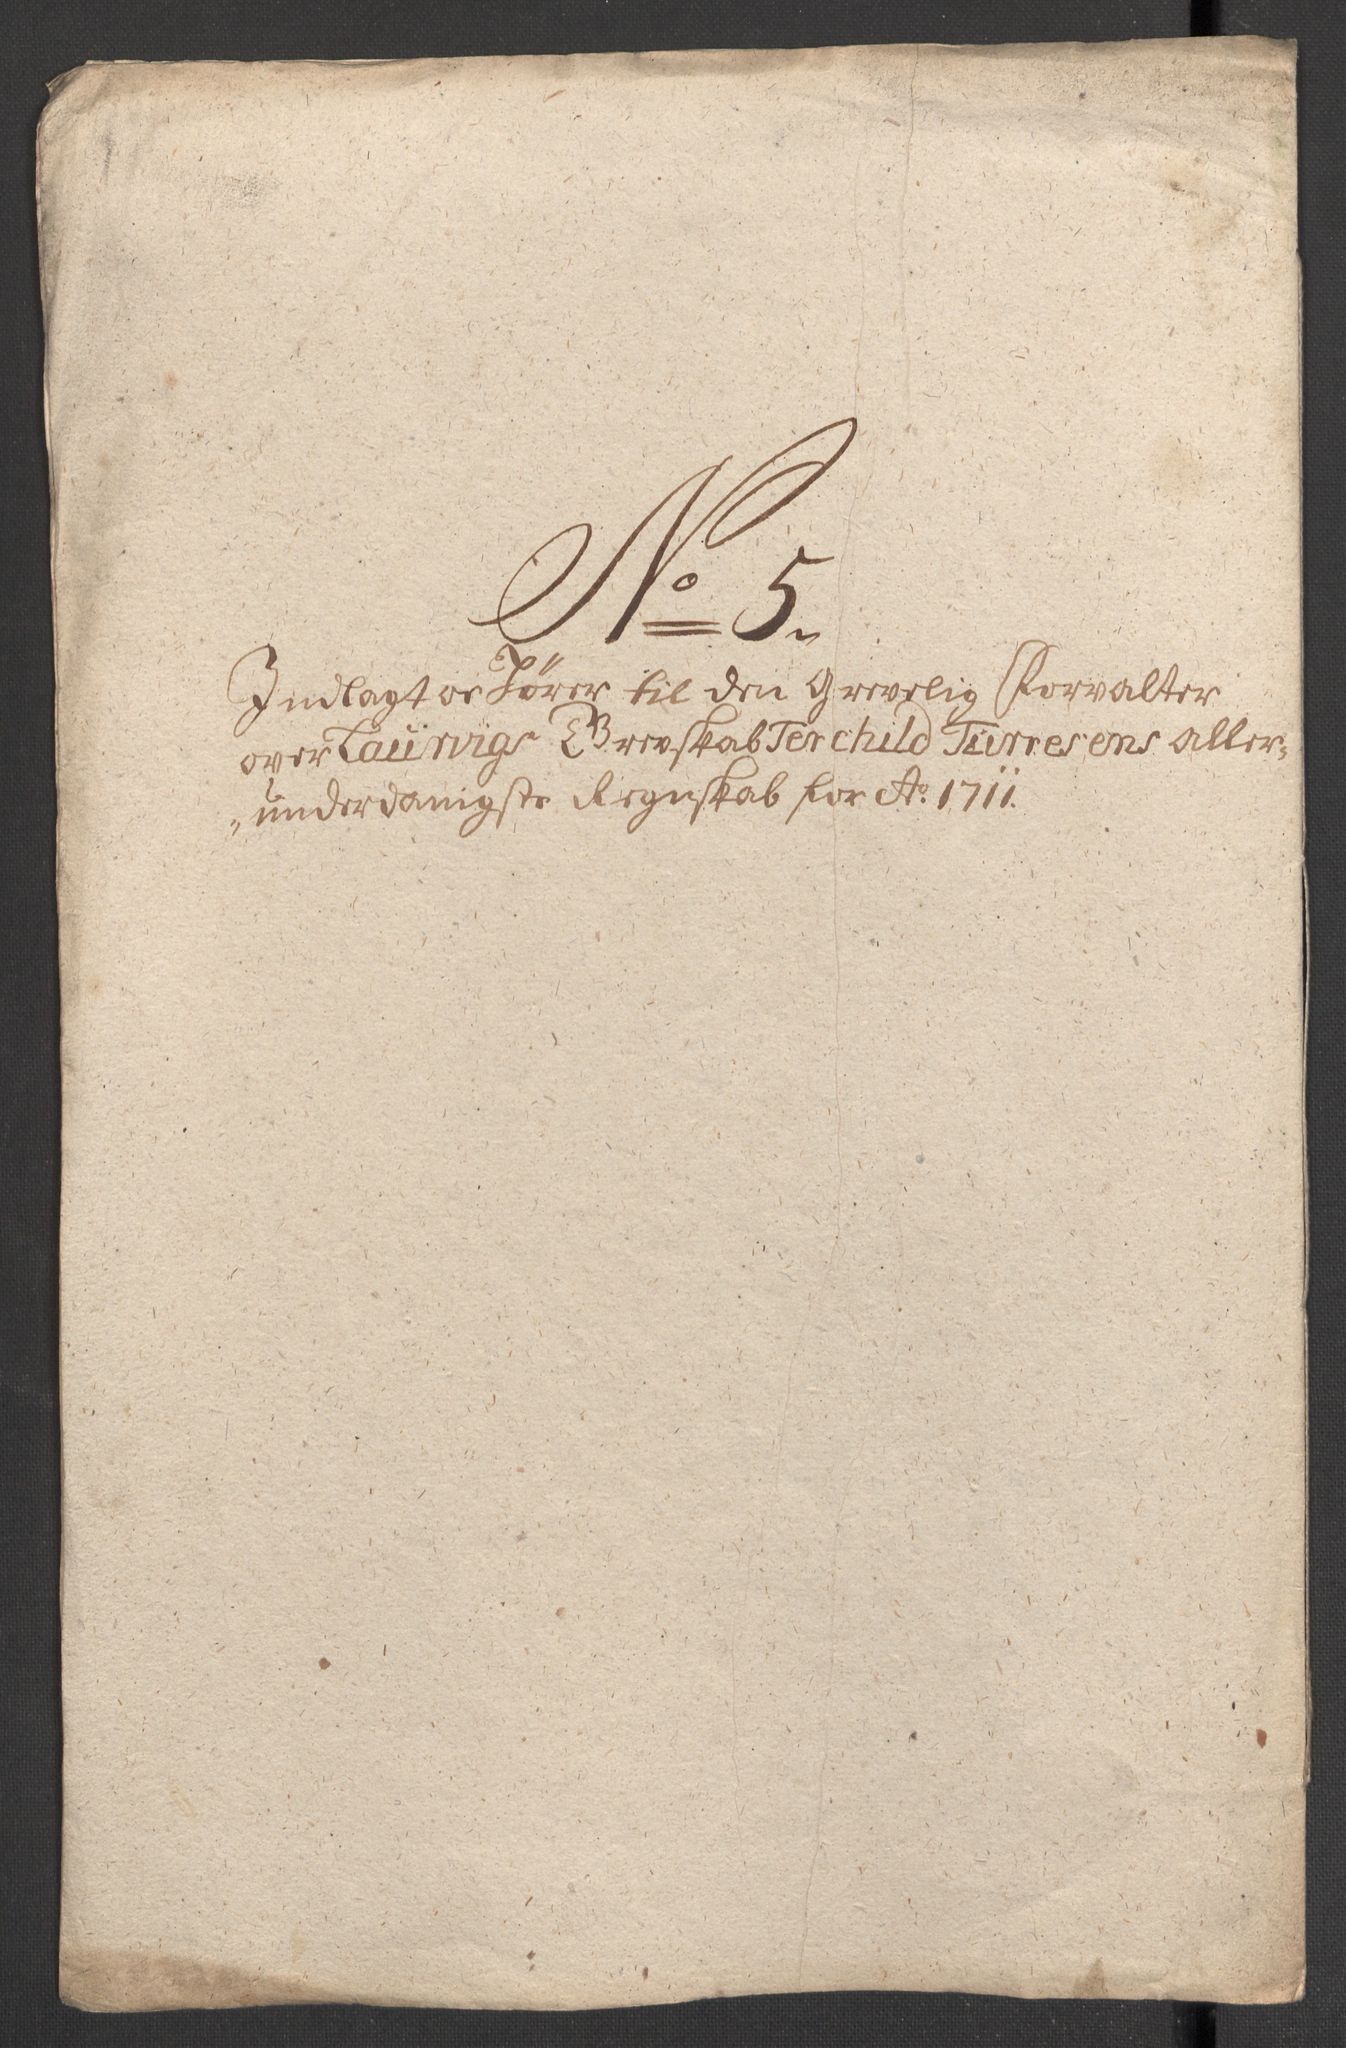 No 5.
Indlagt og hører til den Grevelig Forvalter
over Laurvigs Grevskab Terchild Turresens aller-
underdanigste Regnskab for Ao. 1711.